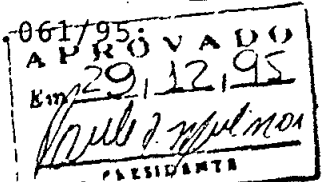 061/95:
APROVADO
Em 29, 12, 95
PRESIDENTE